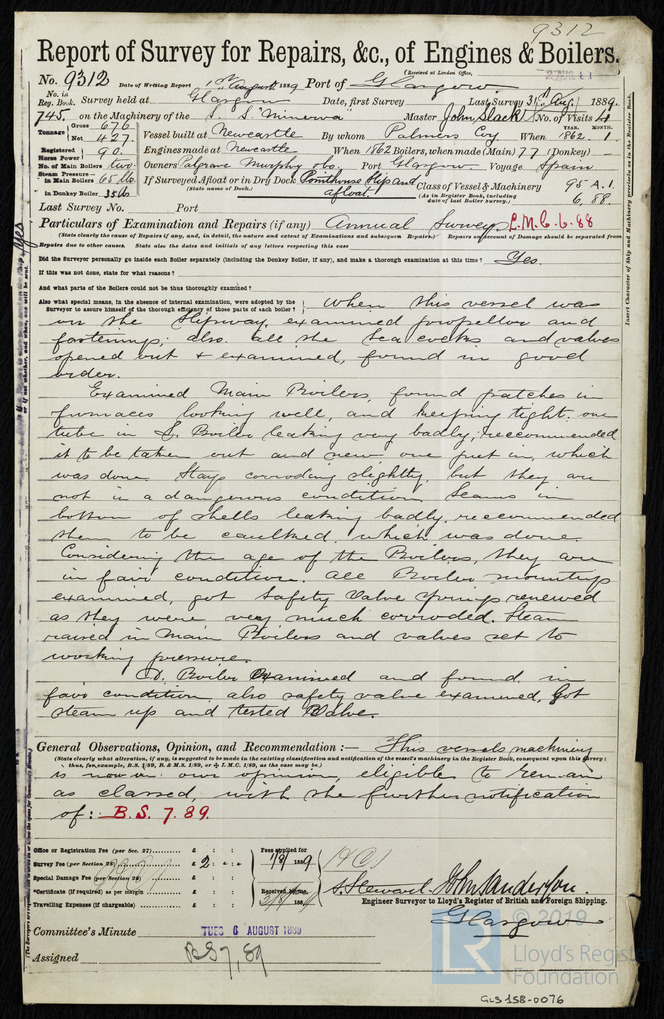 9312
Report of Survey for Repairs, &c., of Engines & Boilers.
(Received at London Office,
No. 9312 Date of Writing Report 1st August 1889 Port of Glasgow
No. in Reg. Book. Survey held at Glasgow Date, first Survey Last Survey 31st Aug. 1889.
745. on the Machinery of the S. S. "Minerva" Master John Slack No. of Visits 4
Tonnage Gross 676 Net 427 Vessel built at Newcastle By whom Palmers Coy When YEAR. 1862 MONTH. 1
Registered Horse Power 90 Engines made at Newcastle When 1862 Boilers, when made (Main) 77 (Donkey) —
No. of Main Boilers two Owners Palgrave Murphy & Co. Port Glasgow Voyage Spain
Steam Pressure in Main Boilers 65 lb If Surveyed Afloat or in Dry Dock Pointhouse Slip and afloat. Class of Vessel & Machinery 95 A. 1.
(State name of Dock.) (As in Register Book, including date of last Boiler Survey.) 6. 88.
in Donkey Boiler 35 lb
Last Survey No. Port
Particulars of Examination and Repairs (if any) Annual Survey L.M.C. 6. 88
(State clearly the cause of Repairs if any, and, in detail, the nature and extent of Examinations and subsequent Repairs.) Repairs on account of Damage should be separated from
Repairs due to other causes. State also the dates and initials of any letters respecting this case
Did the Surveyor personally go inside each Boiler separately (including the Donkey Boiler, if any), and make a thorough examination at this time? Yes.
If this was not done, state for what reasons?
And what parts of the Boilers could not be thus thoroughly examined?
Also what special means, in the absence of internal examination, were adopted by the Surveyor to assure himself of the thorough efficiency of those parts of each boiler?
When this vessel was
on the Slipway, examined propellor and
fastenings; also all the sea cocks and valves
opened out & examined, found in good
order.
Examined Main Boilers, found patches in
furnaces looking well, and keeping tight. one
tube in S. Boiler leaking very badly; reccommended
it to be taken out and new one put in, which
was done. Stays corroding slightly, but they are
not in a dangerous condition. Seams in
bottom of shells leaking badly. reccommended
them to be caulked, which was done.
Considering the age of the Boilers, they are
in fair condition. All Boiler mountings
examined, got Safety Valve Springs renewed
as they were very much corroded. Steam
raised in Main Boilers and valves set to
working pressure.
D. Boiler Examined and found in
fair condition, also safety valve examined, Got
steam up and tested Valve.
General Observations, Opinion, and Recommendation:— This vessels machinery
(State clearly what alteration, if any, is suggested to be made in the existing classification and notification of the vessel's machinery in the Register Book, consequent upon this Survey;
thus, for example, B.S. 1/89, B. & M.S. 1/89, or L M.C. 1/89, as the case may be.)
is now in our opinion, eligible to remain
as classed, with the further notification
of: B.S. 7. 89.
Office or Registration Fee (per Sec. 27) £ : :
Survey Fee (per Section 28) £ 2 : - : -
Special Damage Fee (per Section 28) £ : :
*Certificate (if required) as per margin £ : :
Travelling Expenses (if chargeable) £ : :
Fees applied for 1/8/1889
Received
S. Steward. John Sanderson.
Engineer Surveyor to Lloyd's Register of British and Foreign Shipping.
Glasgow
Committee's Minute TUES 6 AUGUST 1889
Assigned BS 7, 89
© 2019
LR
Lloyd's Register
Foundation
GLS 158-0076
Insert Character of Ship and Machinery precisely as in the Register Book.